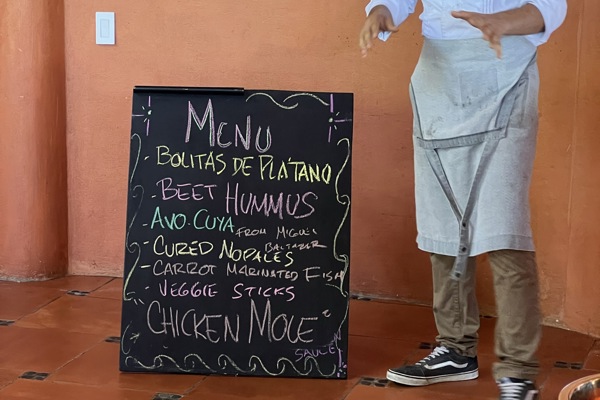 MENU
- BOLITAS DE PLÁTANO
- BEET HUMMUS
AVO-CUYA FROM MIGUEL BALTAZAR
- CURED NOPALES
- CARROT MARINATED FISH
- VEGGIE STICKS
CHICKEN MOLE
SAUCE